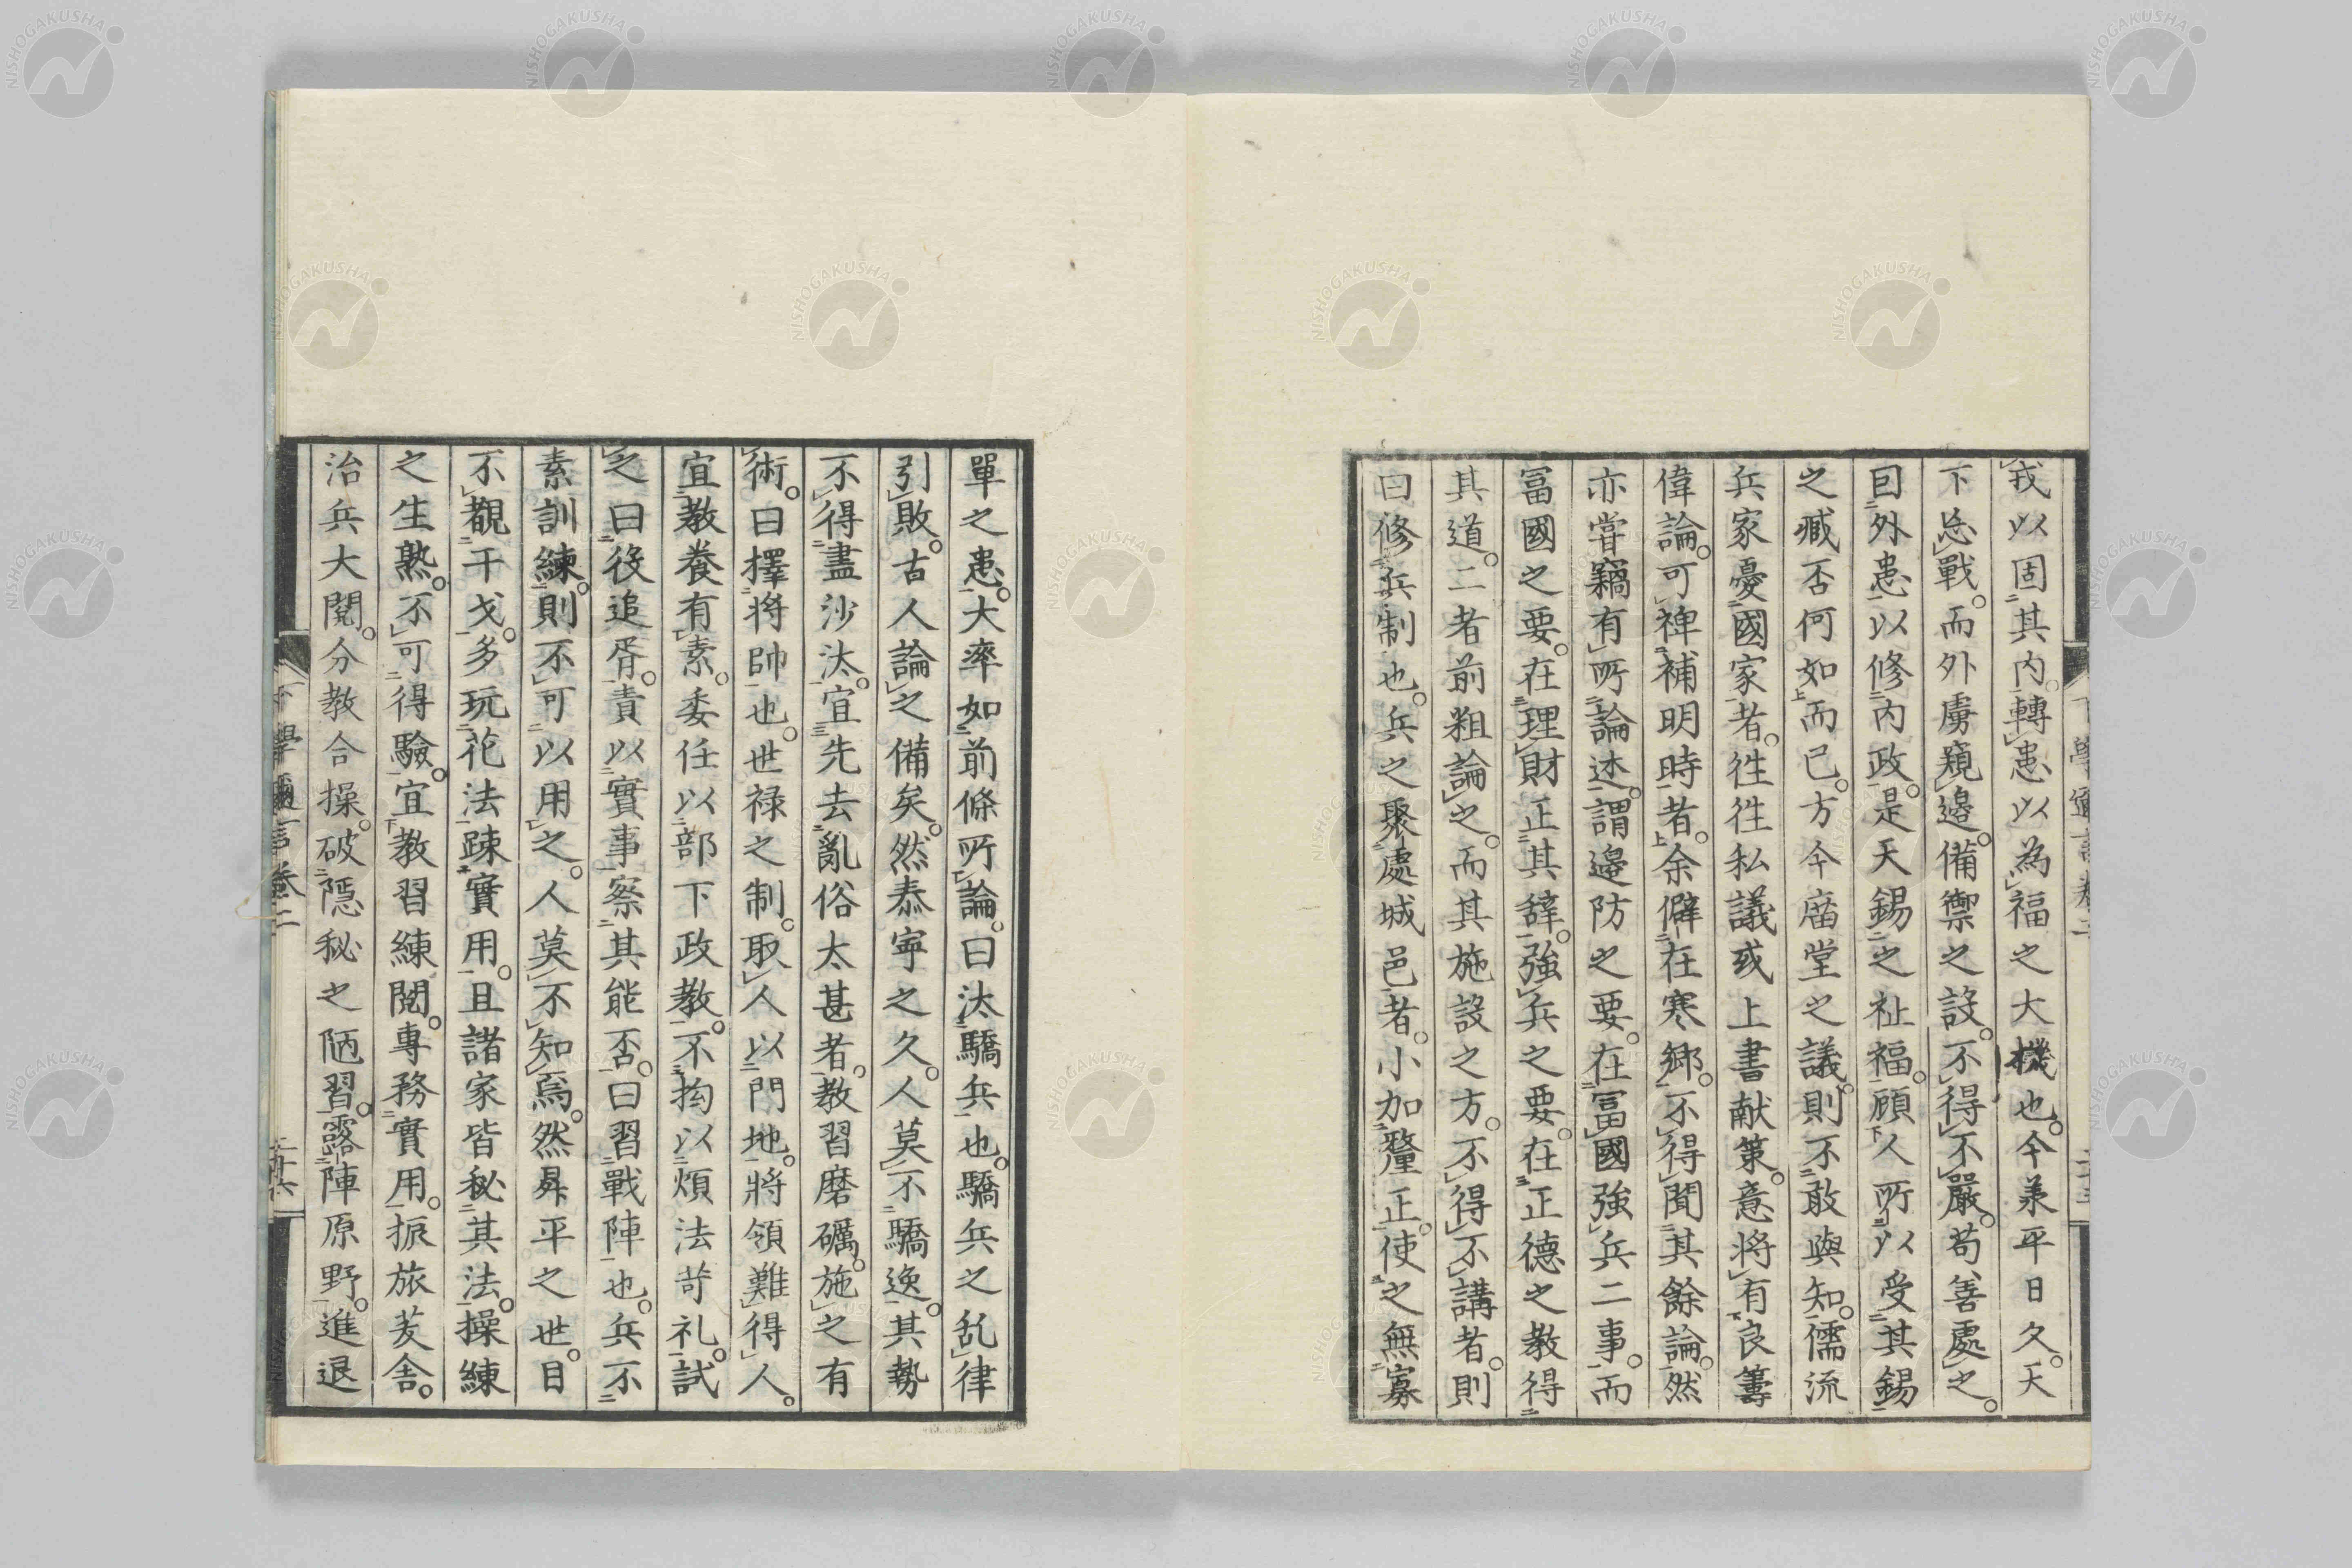 戎以固其内。轉患以為福之大機也。今羕平日久。天
下忘戰。而外虜窺邊。備禦之設。不得不嚴。苟善處之。
囙外患以修内政。是天錫之祉福。顧人所以受其錫
之臧否何如而已。方今庿堂之議。則不敢與知。儒流
兵家憂國家者。徃徃私議或上書献策。意將有良籌
偉論。可裨補明時者。余僻在寒鄉。不得聞其餘論。然
亦嘗竊有所論述。謂邊防之要。在冨國強兵二事。而
冨國之要。在理財正其辭。強兵之要。在正德之教得
其道。二者前粗論之。而其施設之方。不得不講者。則
曰修兵制也。兵之聚處城邑者。小加釐正。使之無寡
單之患。大率如前條所論。曰汰驕兵也。驕兵之乱律
引敗。古人論之備矣。然泰寧之久。人莫不驕逸。其勢
不得盡沙汰。宜先去亂俗太甚者。教習磨礪。施之有
術。曰擇將帥也。世禄之制。取人以門地。將領難得人。
宜教養有素。委任以部下政教。不拘以煩法苛礼。試
之曰役追胥。責以實事。察其能否。曰習戰陣也。兵不
素訓練。則不可以用之。人莫不知焉。然昇平之世。目
不觀干戈。多玩花法疎實用。且諸家皆秘其法。操練
之生熟。不可得驗。宜教習練閲。專務實用。振旅茇舎。
治兵大閲。分教合操。破隠秘之陋習。露陣原野。進退
下學邇言卷二
NISHOGAKUSHA